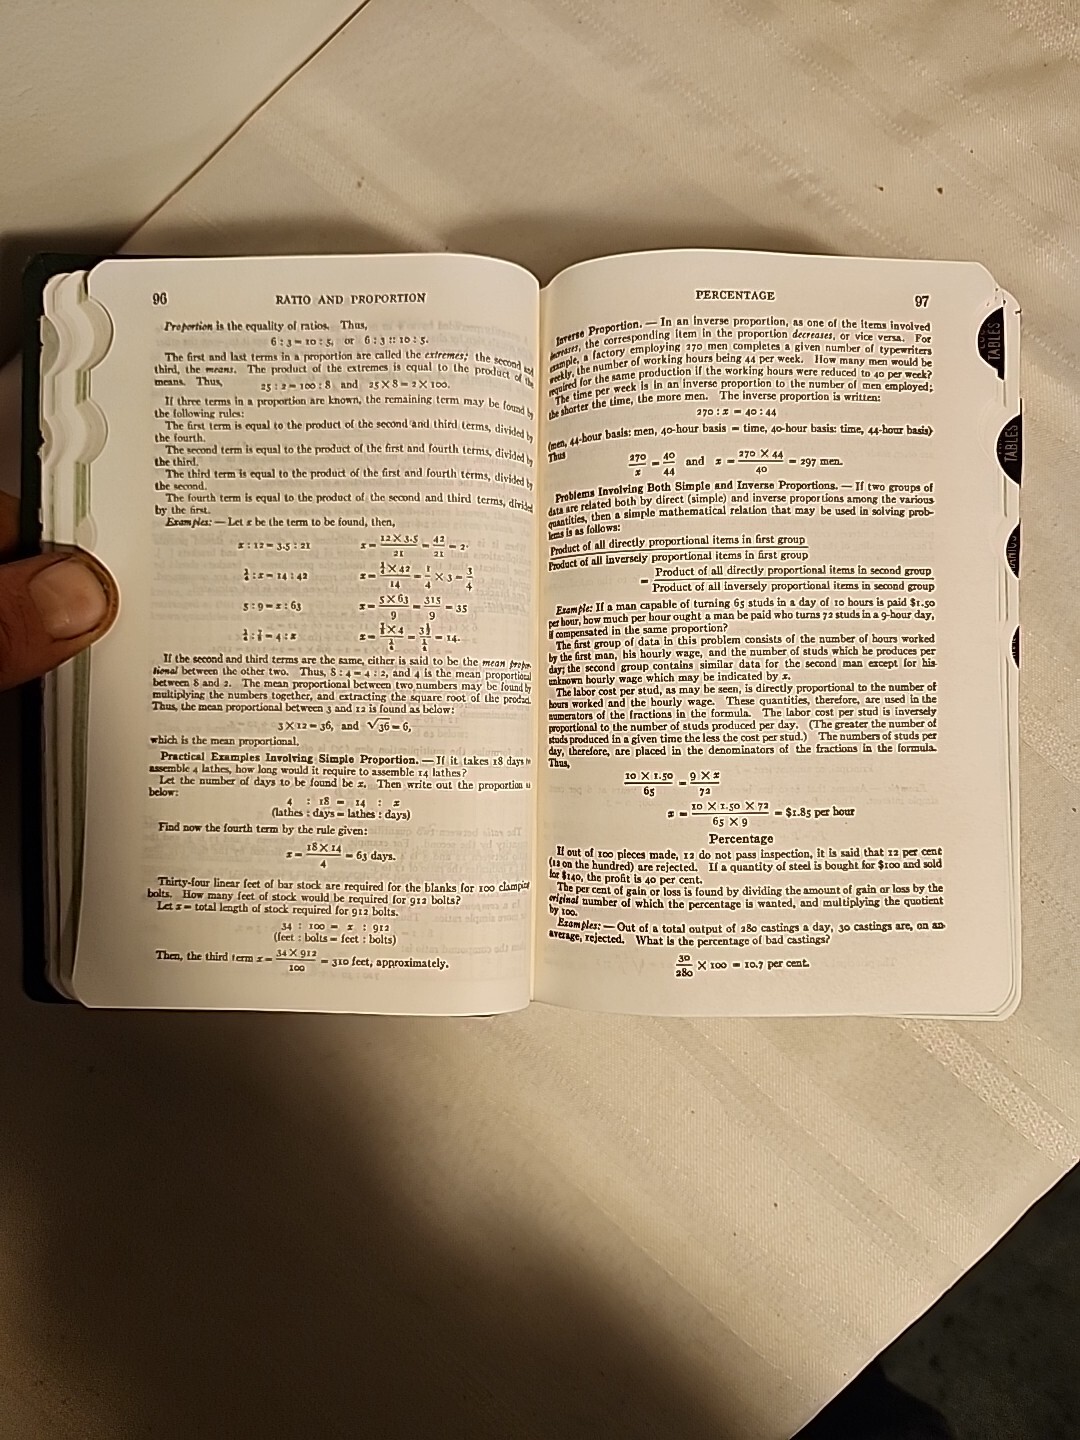 96
RATIO AND PROPORTION
Proportion is the equality of ratios. Thus,
6 : 3 = 10 : 5, or 6 : 3 :: 10 : 5.
The first and last terms in a proportion are called the extremes; the second and
third, the means. The product of the extremes is equal to the product of the
means. Thus,
25 : 2 = 100 : 8 and 25 X 8 = 2 X 100.
If three terms in a proportion are known, the remaining term may be found by
the following rules:
The first term is equal to the product of the second and third terms, divided by
the fourth.
The second term is equal to the product of the first and fourth terms, divided by
the third.
The third term is equal to the product of the first and fourth terms, divided by
the second.
The fourth term is equal to the product of the second and third terms, divided
by the first.
Examples: — Let x be the term to be found, then,
x : 12 = 3.5 : 21 x = 12 X 3.5 / 21 = 42 / 21 = 2.
: x = 14 : 42 x = X 42 / 14 = 1/4 X 3 = 3/4
5 : 9 = x : 63 x = 5 X 63 / 9 = 315 / 9 = 35
= 4 : x x = X 4 = = 14.
If the second and third terms are the same, either is said to be the mean propor-
tional between the other two. Thus, 8 : 4 = 4 : 2, and 4 is the mean proportional
between 8 and 2. The mean proportional between two numbers may be found by
multiplying the numbers together, and extracting the square root of the product.
Thus, the mean proportional between 3 and 12 is found as below:
3 X 12 = 36, and √36 = 6,
which is the mean proportional.
Practical Examples Involving Simple Proportion. — If it takes 18 days to
assemble 4 lathes, how long would it require to assemble 14 lathes?
Let the number of days to be found be x. Then write out the proportion as
below:
4 : 18 = 14 : x
(lathes : days = lathes : days)
Find now the fourth term by the rule given:
x = 18 X 14 / 4 = 63 days.
Thirty-four linear feet of bar stock are required for the blanks for 100 clamping
bolts. How many feet of stock would be required for 912 bolts?
Let x = total length of stock required for 912 bolts.
34 : 100 = x : 912
(feet : bolts = feet : bolts)
Then, the third term x = 34 X 912 / 100 = 310 feet, approximately.
PERCENTAGE
97
Inverse Proportion. — In an inverse proportion, as one of the items involved
increases, the corresponding item in the proportion decreases, or vice versa. For
example, a factory employing 270 men completes a given number of typewriters
weekly, the number of working hours being 44 per week. How many men would be
required for the same production if the working hours were reduced to 40 per week?
The time per week is in an inverse proportion to the number of men employed;
the shorter the time, the more men. The inverse proportion is written:
270 : x = 40 : 44
(men, 44-hour basis: men, 40-hour basis = time, 40-hour basis: time, 44-hour basis)
Thus
270 / x = 40 / 44 and x = 270 X 44 / 40 = 297 men.
Problems Involving Both Simple and Inverse Proportions. — If two groups of
data are related both by direct (simple) and inverse proportions among the various
quantities, then a simple mathematical relation that may be used in solving prob-
lems is as follows:
Product of all directly proportional items in first group
Product of all inversely proportional items in first group
= Product of all directly proportional items in second group
Product of all inversely proportional items in second group
Example: If a man capable of turning 65 studs in a day of 10 hours is paid $1.50
per hour, how much per hour ought a man be paid who turns 72 studs in a 9-hour day,
if compensated in the same proportion?
The first group of data in this problem consists of the number of hours worked
by the first man, his hourly wage, and the number of studs which he produces per
day; the second group contains similar data for the second man except for his
unknown hourly wage which may be indicated by x.
The labor cost per stud, as may be seen, is directly proportional to the number of
hours worked and the hourly wage. These quantities, therefore, are used in the
numerators of the fractions in the formula. The labor cost per stud is inversely
proportional to the number of studs produced per day. (The greater the number of
studs produced in a given time the less the cost per stud.) The numbers of studs per
day, therefore, are placed in the denominators of the fractions in the formula.
Thus,
10 X 1.50 / 65 = 9 X x / 72
x = 10 X 1.50 X 72 / 65 X 9 = $1.85 per hour
Percentage
If out of 100 pieces made, 12 do not pass inspection, it is said that 12 per cent
(12 on the hundred) are rejected. If a quantity of steel is bought for $100 and sold
for $140, the profit is 40 per cent.
The per cent of gain or loss is found by dividing the amount of gain or loss by the
original number of which the percentage is wanted, and multiplying the quotient
by 100.
Examples: — Out of a total output of 280 castings a day, 30 castings are, on an
average, rejected. What is the percentage of bad castings?
30 / 280 X 100 = 10.7 per cent.
TABLES
TABLES